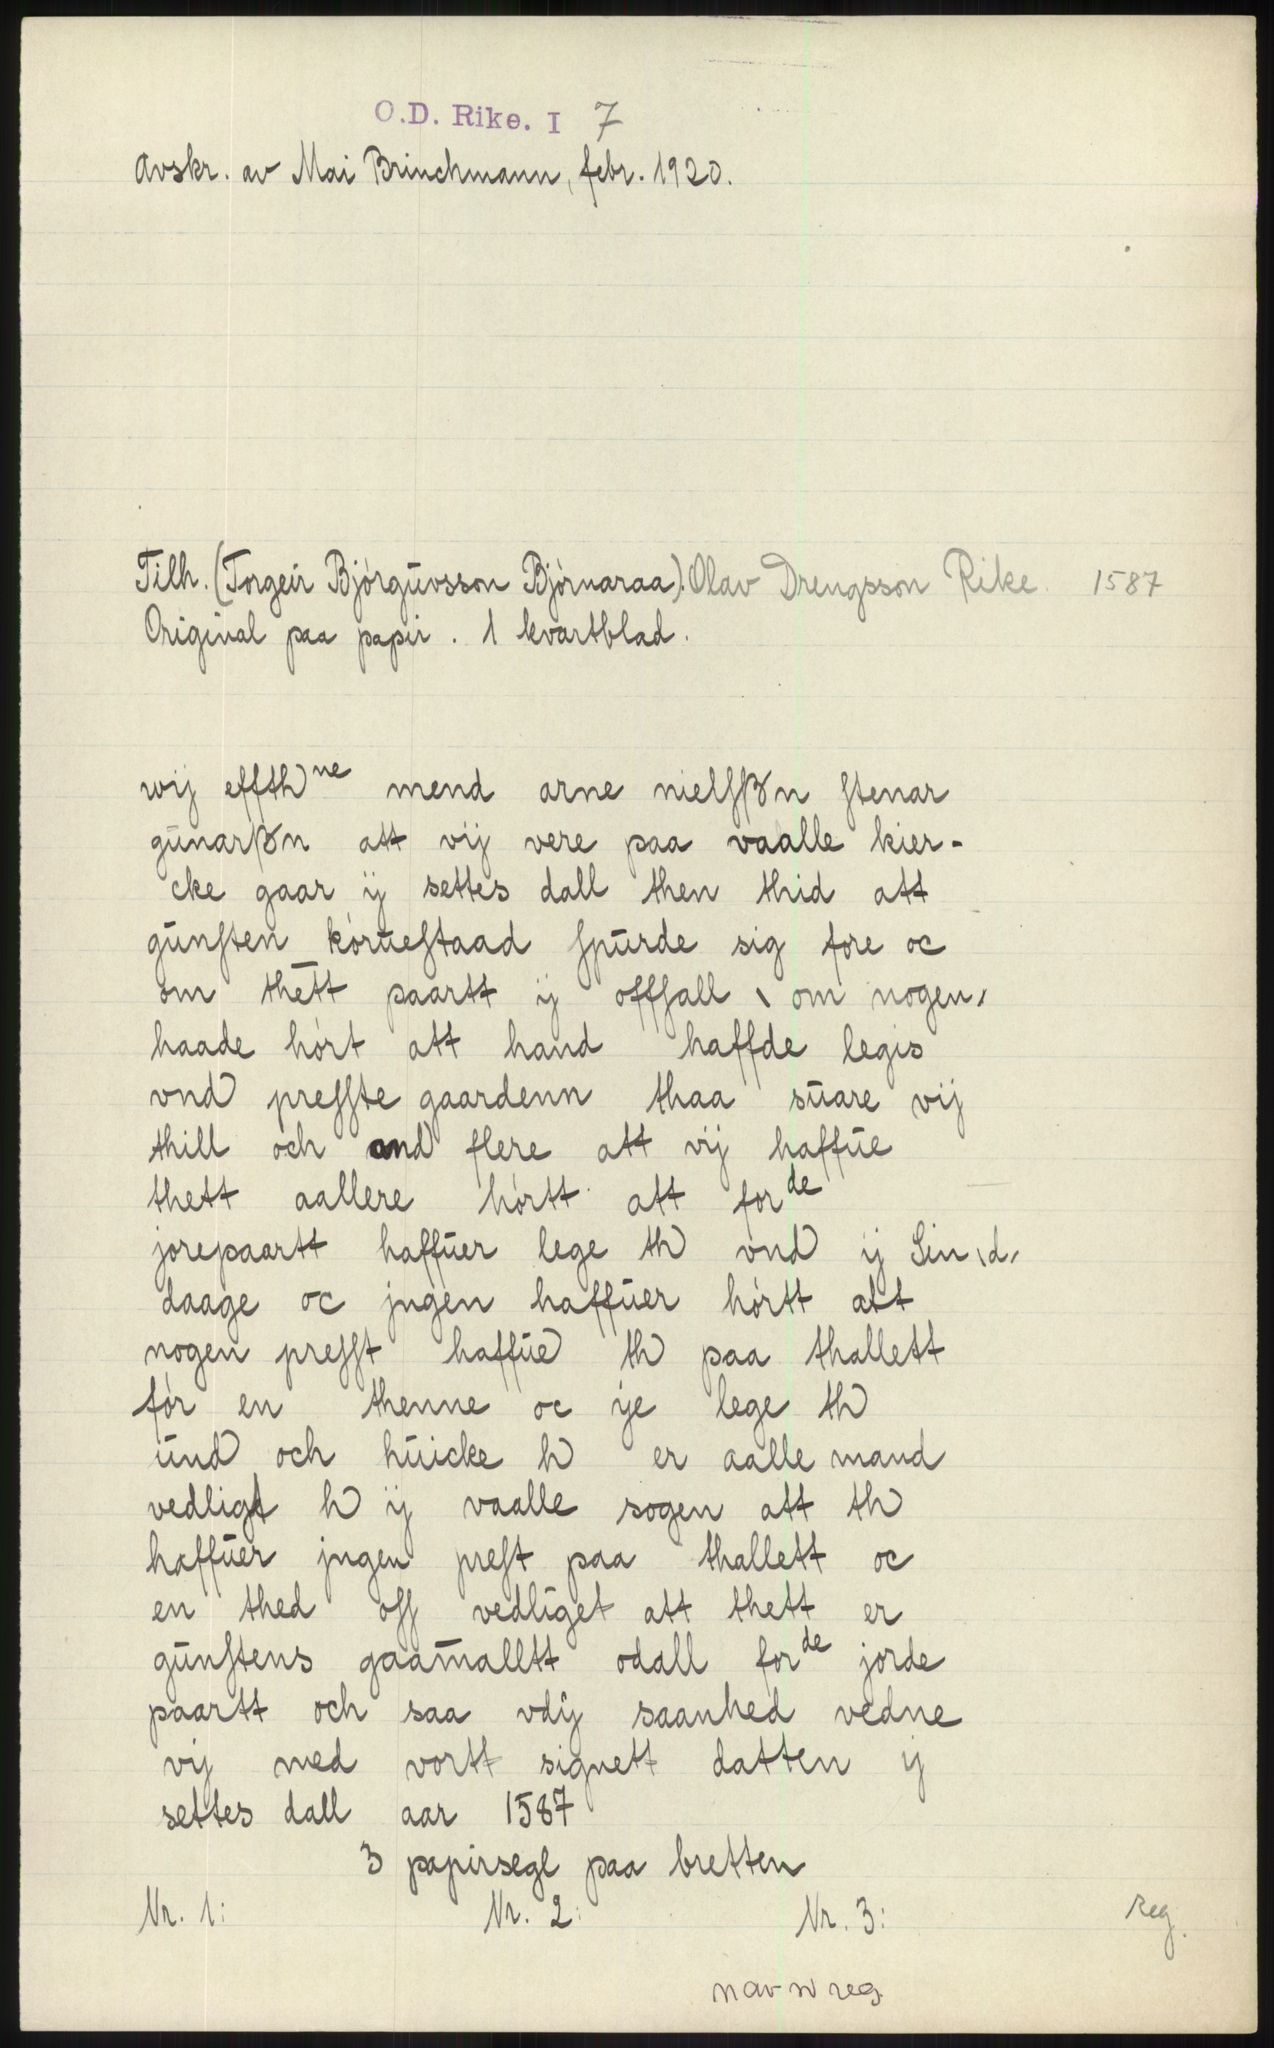 O.D. Rike. I 7
Avskr. av Mai Brinchmann, febr. 1920.
Tilh. (Torgeir Bjórgŭvsson Bjórnaraa). Olav Drengsson Rike. 1587
Original paa papir. 1 kvartblad.
wij effth ne mend arne nielsßn stenar
gŭnarßn att vij vere paa vaalle kier-
cke gaar ij settes dall then thid att
gŭnsten kórŭestaad spŭrde sig fore oc
om thett paartt ij offfall om nogen
haade hórt att hand haffde legis
vnd presste gaardenn thaa sŭare vij
thill och and flere att vij haffŭe
thett aallere hórtt att for de
jorepaartt haffŭer lege th vnd ij Sin d
daage oc jngen haffŭer hórtt att
nogen presst haffŭe th paa thallett
fór en thenne oc ije lege th
ŭnd och hŭicke h er aalle mand
vedligt h ij vaalle sogen att th
haffŭer jngen prest paa thallett oc
en thed off vedliget att thett er
gŭnstens gaamalltt odall for de jorde
paartt och saa vdij saanhed vedne
vij med vortt signett datten ij
settes dall aar 1587
3 papirsegl paa bretten
Nr. 1: Nr. 2: Nr. 3: Reg.
navnreg.